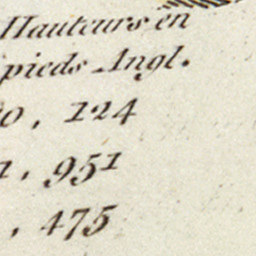 Hauteurs en
pieds Angl.
0, 124
1, 951
, 475